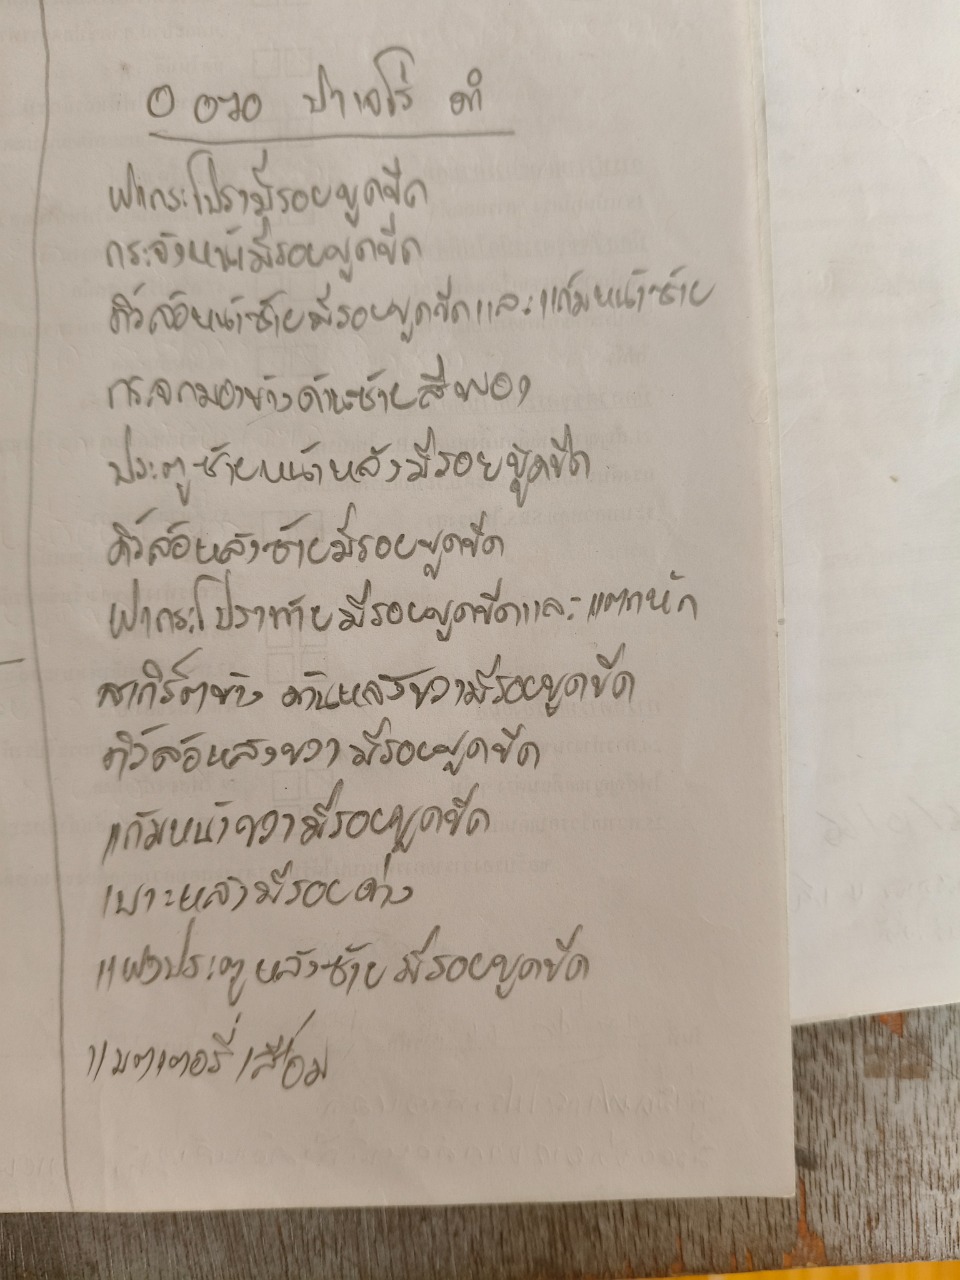 ปาเจโร่ ดำ
ฝากระโปรงมีรอยขูดขีด
กระจังหน้ามีรอยขูดขีด
คิ้วล้อหน้าซ้ายมีรอยขูดขีดและแก้มหน้าซ้าย
กระจกมองข้างด้านซ้ายสีพอง
ประตูซ้ายหน้าหลังมีรอยขูดขีด
คิ้วล้อหลังซ้ายมีรอยขูดขีด
ฝากระโปรงท้ายมีรอยขูดขีดและแตกหัก
ข้าง ด้านหลังขวามีรอยขูดขีด
คิ้วล้อหลังขวามีรอยขูดขีด
แก้มหน้าขวามีรอยขูดขีด
เบาะหลังมีรอยด่าง
แผงประตูหลังซ้ายมีรอยขูดขีด
แบตเตอรี่เสื่อม